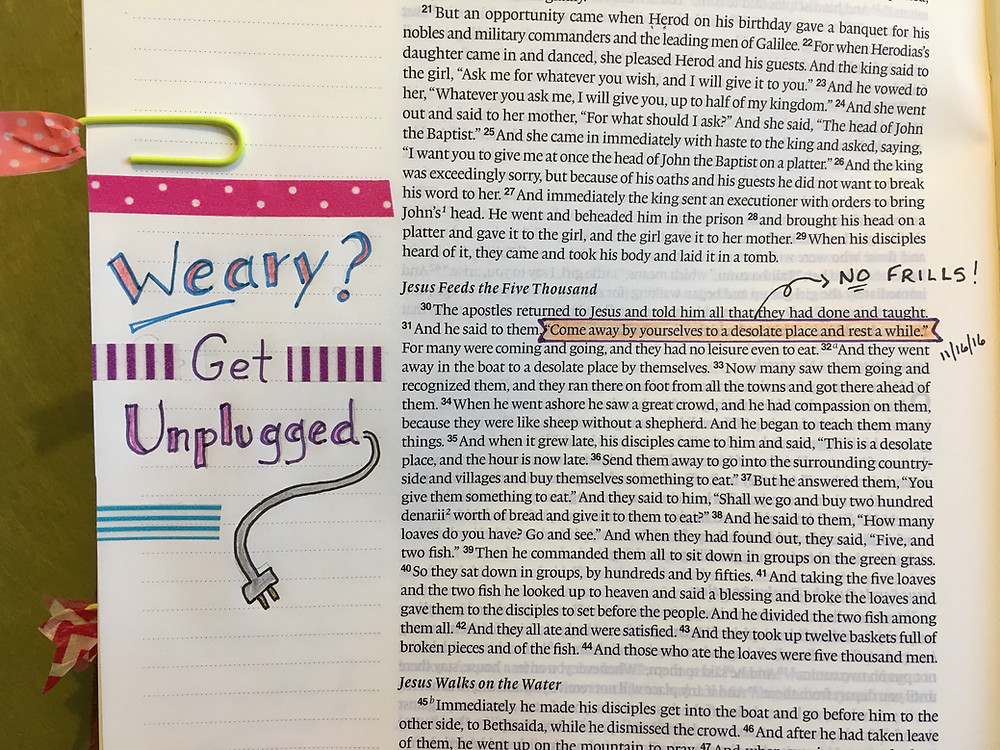 21 But an opportunity came when Herod on his birthday gave a banquet for his
nobles and military commanders and the leading men of Galilee. 22 For when Herodias's
daughter came in and danced, she pleased Herod and his guests. And the king said to
the girl, “Ask me for whatever you wish, and I will give it to you.” 23 And he vowed to
her, “Whatever you ask me, I will give you, up to half of my kingdom.” 24 And she went
out and said to her mother, “For what should I ask?” And she said, “The head of John
the Baptist.” 25 And she came in immediately with haste to the king and asked, saying,
“I want you to give me at once the head of John the Baptist on a platter.” 26 And the king
was exceedingly sorry, but because of his oaths and his guests he did not want to break
his word to her. 27 And immediately the king sent an executioner with orders to bring
John's1 head. He went and beheaded him in the prison 28 and brought his head on a
platter and gave it to the girl, and the girl gave it to her mother. 29 When his disciples
heard of it, they came and took his body and laid it in a tomb.
Weary?
Get
Unplugged
NO FRILLS!
Jesus Feeds the Five Thousand
30 The apostles returned to Jesus and told him all that they had done and taught.
31 And he said to them, “Come away by yourselves to a desolate place and rest a while.”
11/16/16
For many were coming and going, and they had no leisure even to eat. 32 a And they went
away in the boat to a desolate place by themselves. 33 Now many saw them going and
recognized them, and they ran there on foot from all the towns and got there ahead of
them. 34 When he went ashore he saw a great crowd, and he had compassion on them,
because they were like sheep without a shepherd. And he began to teach them many
things. 35 And when it grew late, his disciples came to him and said, “This is a desolate
place, and the hour is now late. 36 Send them away to go into the surrounding country-
side and villages and buy themselves something to eat.” 37 But he answered them, “You
give them something to eat.” And they said to him, “Shall we go and buy two hundred
denarii2 worth of bread and give it to them to eat?” 38 And he said to them, “How many
loaves do you have? Go and see.” And when they had found out, they said, “Five, and
two fish.” 39 Then he commanded them all to sit down in groups on the green grass.
40 So they sat down in groups, by hundreds and by fifties. 41 And taking the five loaves
and the two fish he looked up to heaven and said a blessing and broke the loaves and
gave them to the disciples to set before the people. And he divided the two fish among
them all. 42 And they all ate and were satisfied. 43 And they took up twelve baskets full of
broken pieces and of the fish. 44 And those who ate the loaves were five thousand men.
Jesus Walks on the Water
45 b Immediately he made his disciples get into the boat and go before him to the
other side, to Bethsaida, while he dismissed the crowd. 46 And after he had taken leave
of them, he went up on the mountain to pray. 47 And when